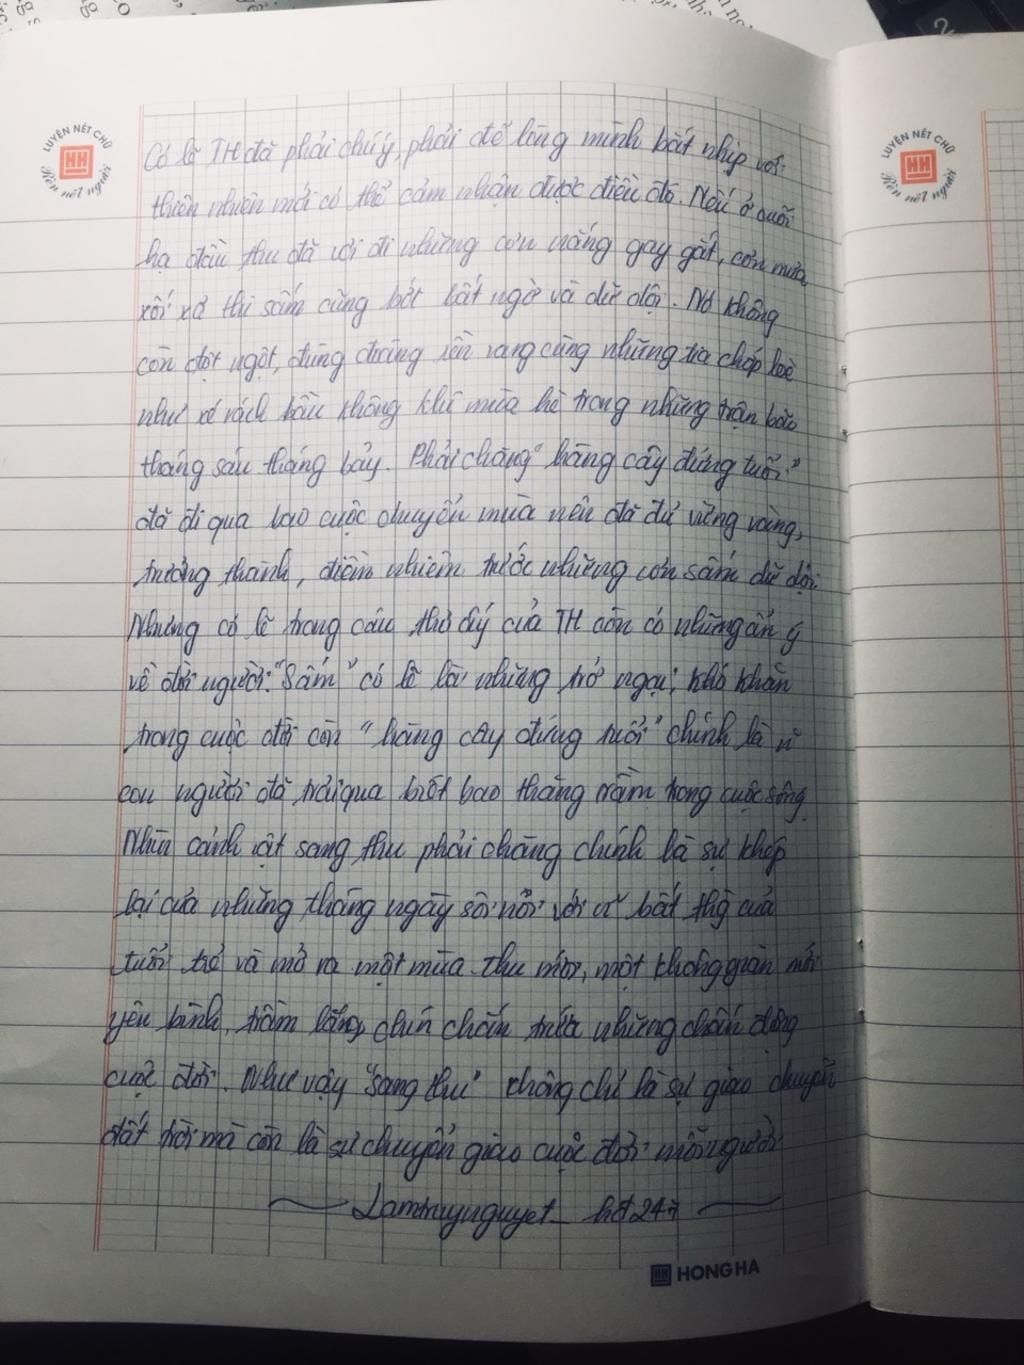 LUYỆN NẾT CHỮ
Rèn nết người
LUYỆN NẾT CHỮ
Rèn nết người
Có lẽ TH đã phải chú ý, phải để lòng mình bắt nhịp với
thiên nhiên mới có thể cảm nhận được điều đó. Nếu ở cuối
hạ đầu thu đã vơi đi những cơn nắng gay gắt, cơn mưa
xối xả thì sấm cũng bớt bất ngờ và dữ dội. Nó không
còn đột ngột, đùng đoàng rền vang cùng những tia chớp loè
như xé rách bầu không khí mùa hè trong những trận bão
tháng sáu tháng bảy. Phải chăng "hàng cây đứng tuổi"
đã đi qua bao cuộc chuyển mùa nên đã đủ vững vàng,
trưởng thành, điềm nhiên trước những cơn sấm dữ dội.
Nhưng có lẽ trong câu thơ ấy của TH còn có những ẩn ý
về đời người. "Sấm" có lẽ là những trở ngại, khó khăn
trong cuộc đời còn "hàng cây đứng tuổi" chính là
con người đã trải qua biết bao thăng trầm trong cuộc sống.
Nhìn cảnh vật sang thu phải chăng chính là sự khép
lại của những tháng ngày sôi nổi với bất thg của
tuổi trẻ và mở ra một mùa thu mới, một không gian mới
yên bình, trầm lắng, chín chắn trước những chấn động
cuộc đời. Như vậy "sang thu" không chỉ là sự giao chuyển
đất trời mà còn là sự chuyển giao cuộc đời mỗi người
Lamthuynguyet_ h 247
HONG HA